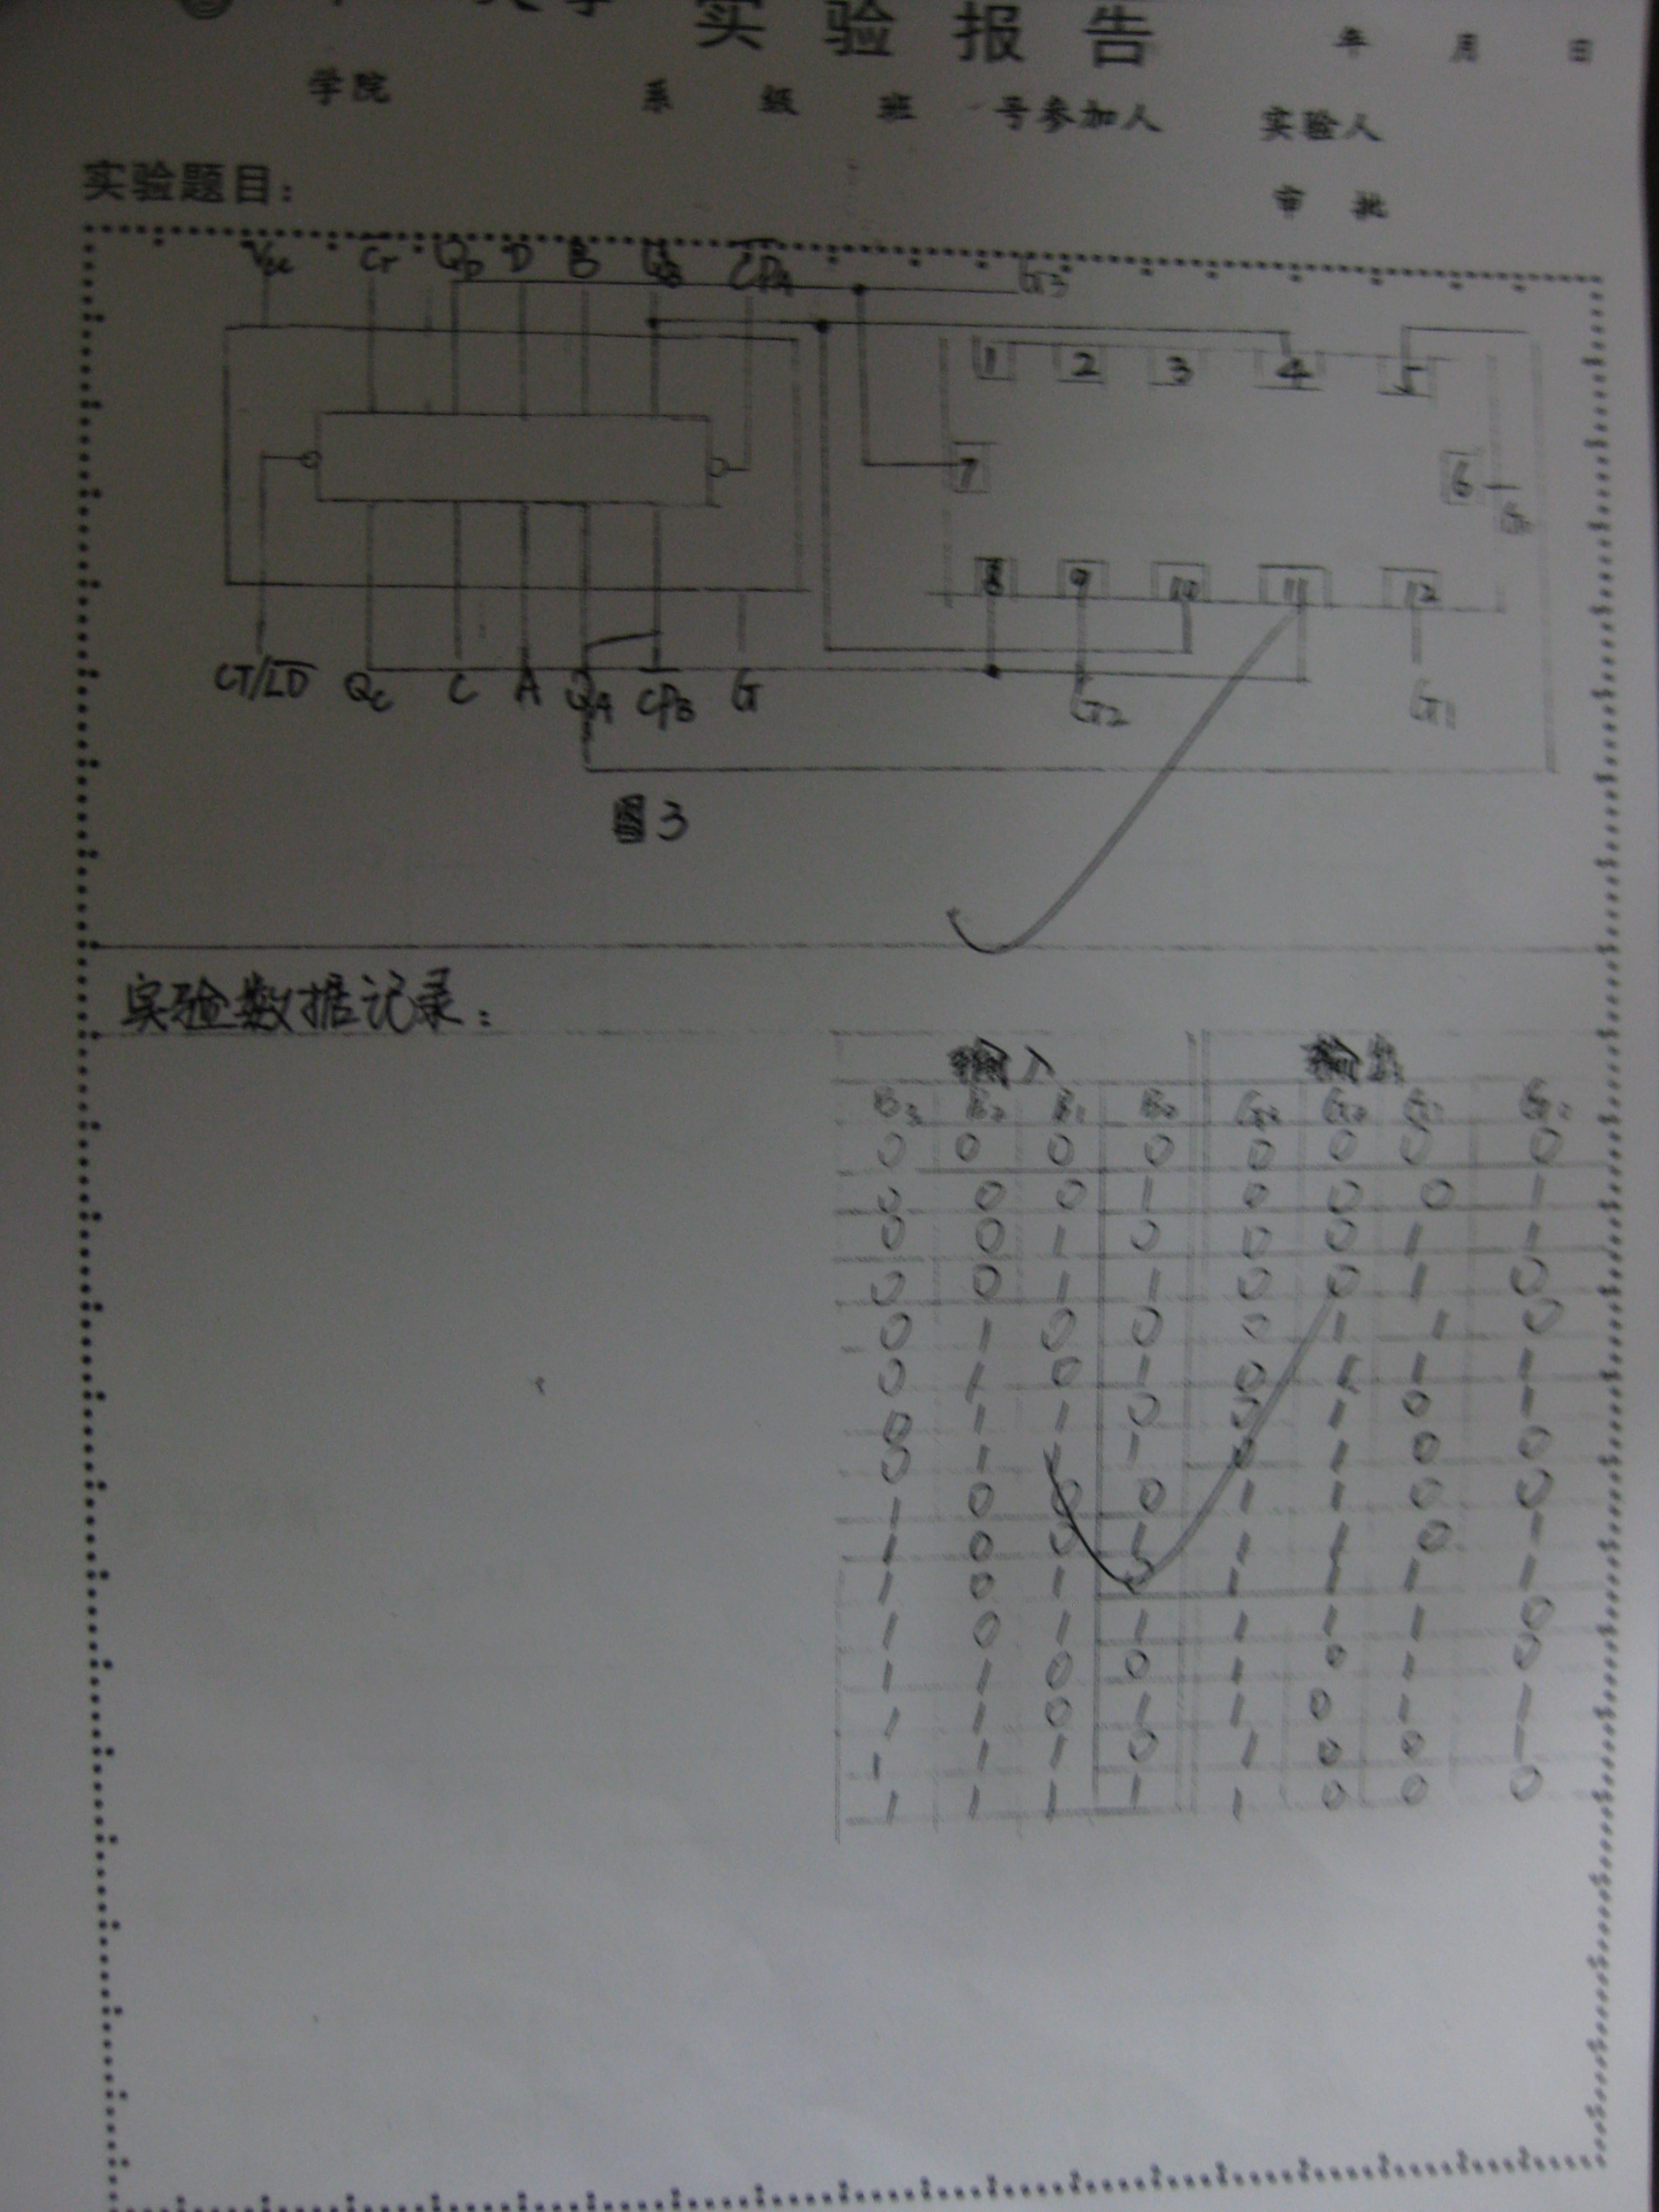 大学 实验报告 年 月 日
学院 系 级 班 号参加人 实验人
实验题目：
审 批
Vcc Cr QD D B QB C̅P̅A̅ G3
1 2 3 4 5
7 6
8 9 10 11 12
CT/L̅D̅ QC C A QA CPB G G2 G1
图3
实验数据记录：
输入 输出
B3 B2 B1 B0 G3 G2 G1 G0
0 0 0 0 0 0 0 0
0 0 0 1 0 0 0 1
0 0 1 0 0 0 1 1
0 0 1 1 0 0 1 0
0 1 0 0 0 1 1 0
0 1 0 1 0 1 1 1
0 1 1 0 0 1 0 1
0 1 1 1 0 1 0 0
1 0 0 0 1 1 0 0
1 0 0 1 1 1 0 1
1 0 1 0 1 1 1 1
1 0 1 1 1 1 1 0
1 1 0 0 1 0 1 0
1 1 0 1 1 0 1 1
1 1 1 0 1 0 0 1
1 1 1 1 1 0 0 0